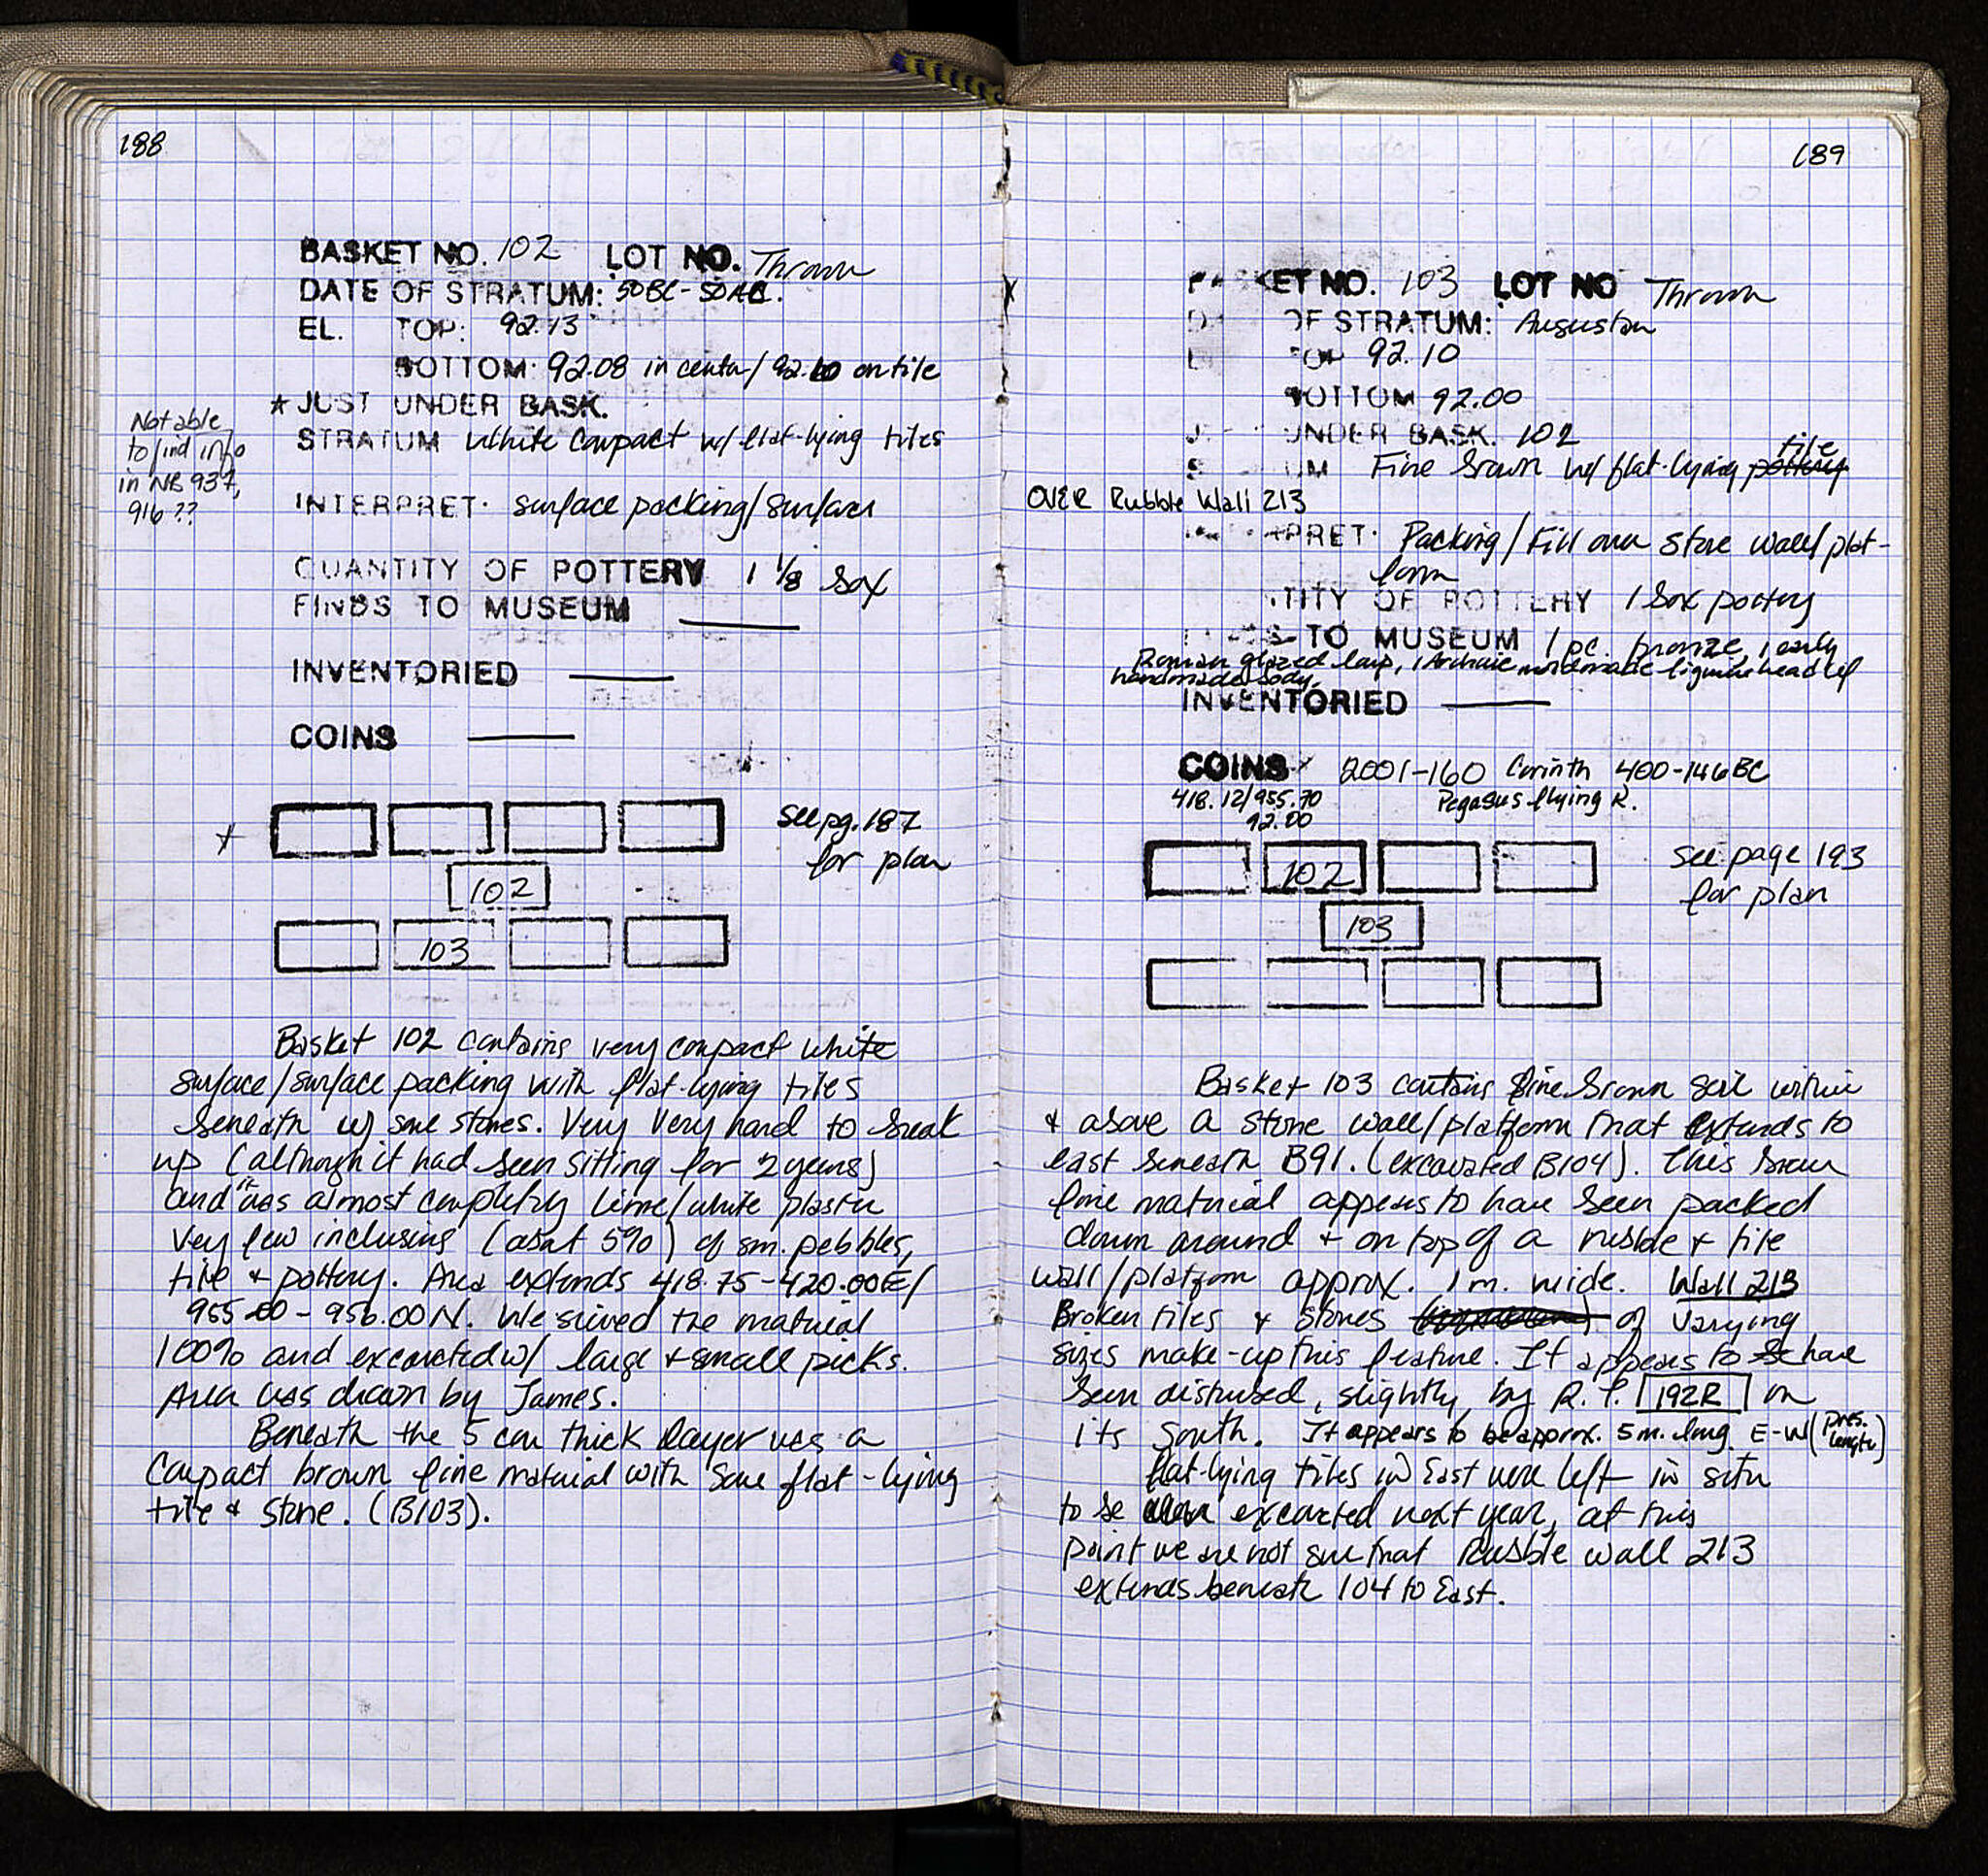 188
BASKET NO. 102 LOT NO. Thrown
DATE OF STRATUM: 50BC-50AC.
EL. TOP: 92.13
BOTTOM: 92.08 in center/92.10 on tile
* JUST UNDER BASK.
Not able
to find info
in NB 937,
916 ??
STRATUM White Compact w/ flat-lying tiles
INTERPRET. surface packing/surfaces
QUANTITY OF POTTERY 1 1/8 box
FINDS TO MUSEUM —
INVENTORIED —
COINS —
See pg. 187
for plan
102
103
Basket 102 contains very compact white
surface/surface packing with flat-lying tiles
beneath w/ some stones. Very Very hard to break
up (although it had been sitting for 2 years)
and it was almost completely lime/white plaster
very few inclusions (about 5%) of sm. pebbles,
tile & pottery. Area extends 418.75-420.00E/
955.00-956.00N. We sieved the material
100% and excavated w/ large & small picks.
Area was drawn by James.
Beneath the 5 cm thick layer was a
Compact brown fine material with some flat-lying
tile & stone. (B103).
189
X
KET NO. 103 LOT NO Thrown
OF STRATUM: Augustan
TOP 92.10
BOTTOM 92.00
UNDER BASK. 102
UM Fine brown w/ flat-lying pottery tile
OVER Rubble Wall 213
PRET. Packing/Fill over stone wall/plat-
form
TITY OF POTTERY 1 box pottery
TO MUSEUM 1 pc. bronze, 1 early
Roman glazed lamp, 1 Archaic figurine head w/
handmade body.
INVENTORIED —
COINS 2001-160 Corinth 400-146BC
418.12/955.70 Pegasus flying R.
92.00
102
See page 193
for plan
103
Basket 103 contains fine brown soil within
& above a stone wall/platform that extends to
east beneath B91. (excavated B104). This brown
fine material appears to have been packed
down around & on top of a rubble & tile
wall/platform approx. 1 m. wide. Wall 213
Broken tiles & stones of varying
sizes make-up this feature. It appears to have
been disturbed, slightly, by R.T. 192R on
its South. It appears to be approx. 5 m. long E-W (pres. length)
flat-lying tiles in East were left in situ
to be excavated next year, at this
point we are not sure that Rubble wall 213
extends beneath 104 to East.